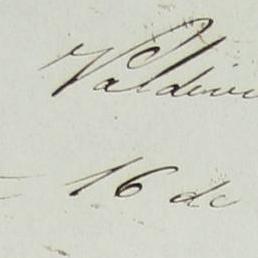 Valdivi
16 de